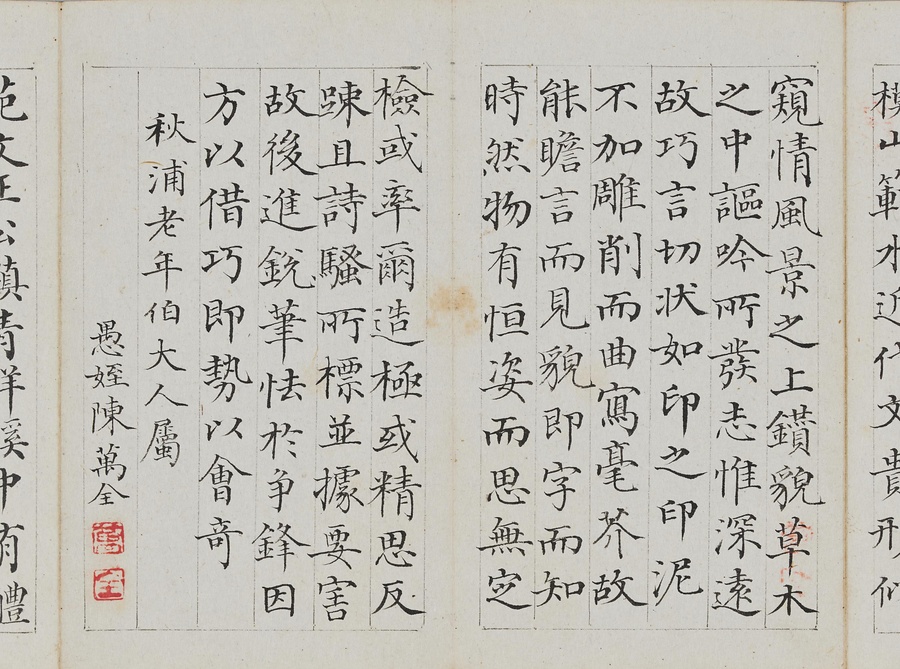 模山範水近代文貴形似
窺情風景之上鑽貌草木
之中謳吟所發志惟深遠
故巧言切状如印之印泥
不加雕削而曲寫毫芥故
能瞻言而見貌即字而知
時然物有恒姿而思無定
檢或率爾造極或精思反
踈且詩騷所標並據要害
故後進銳筆怯於争鋒因
方以借巧即勢以會奇
秋浦老年伯大人屬
愚姪陳萬全
萬
全
范文正公鎮青洋溪中有醴